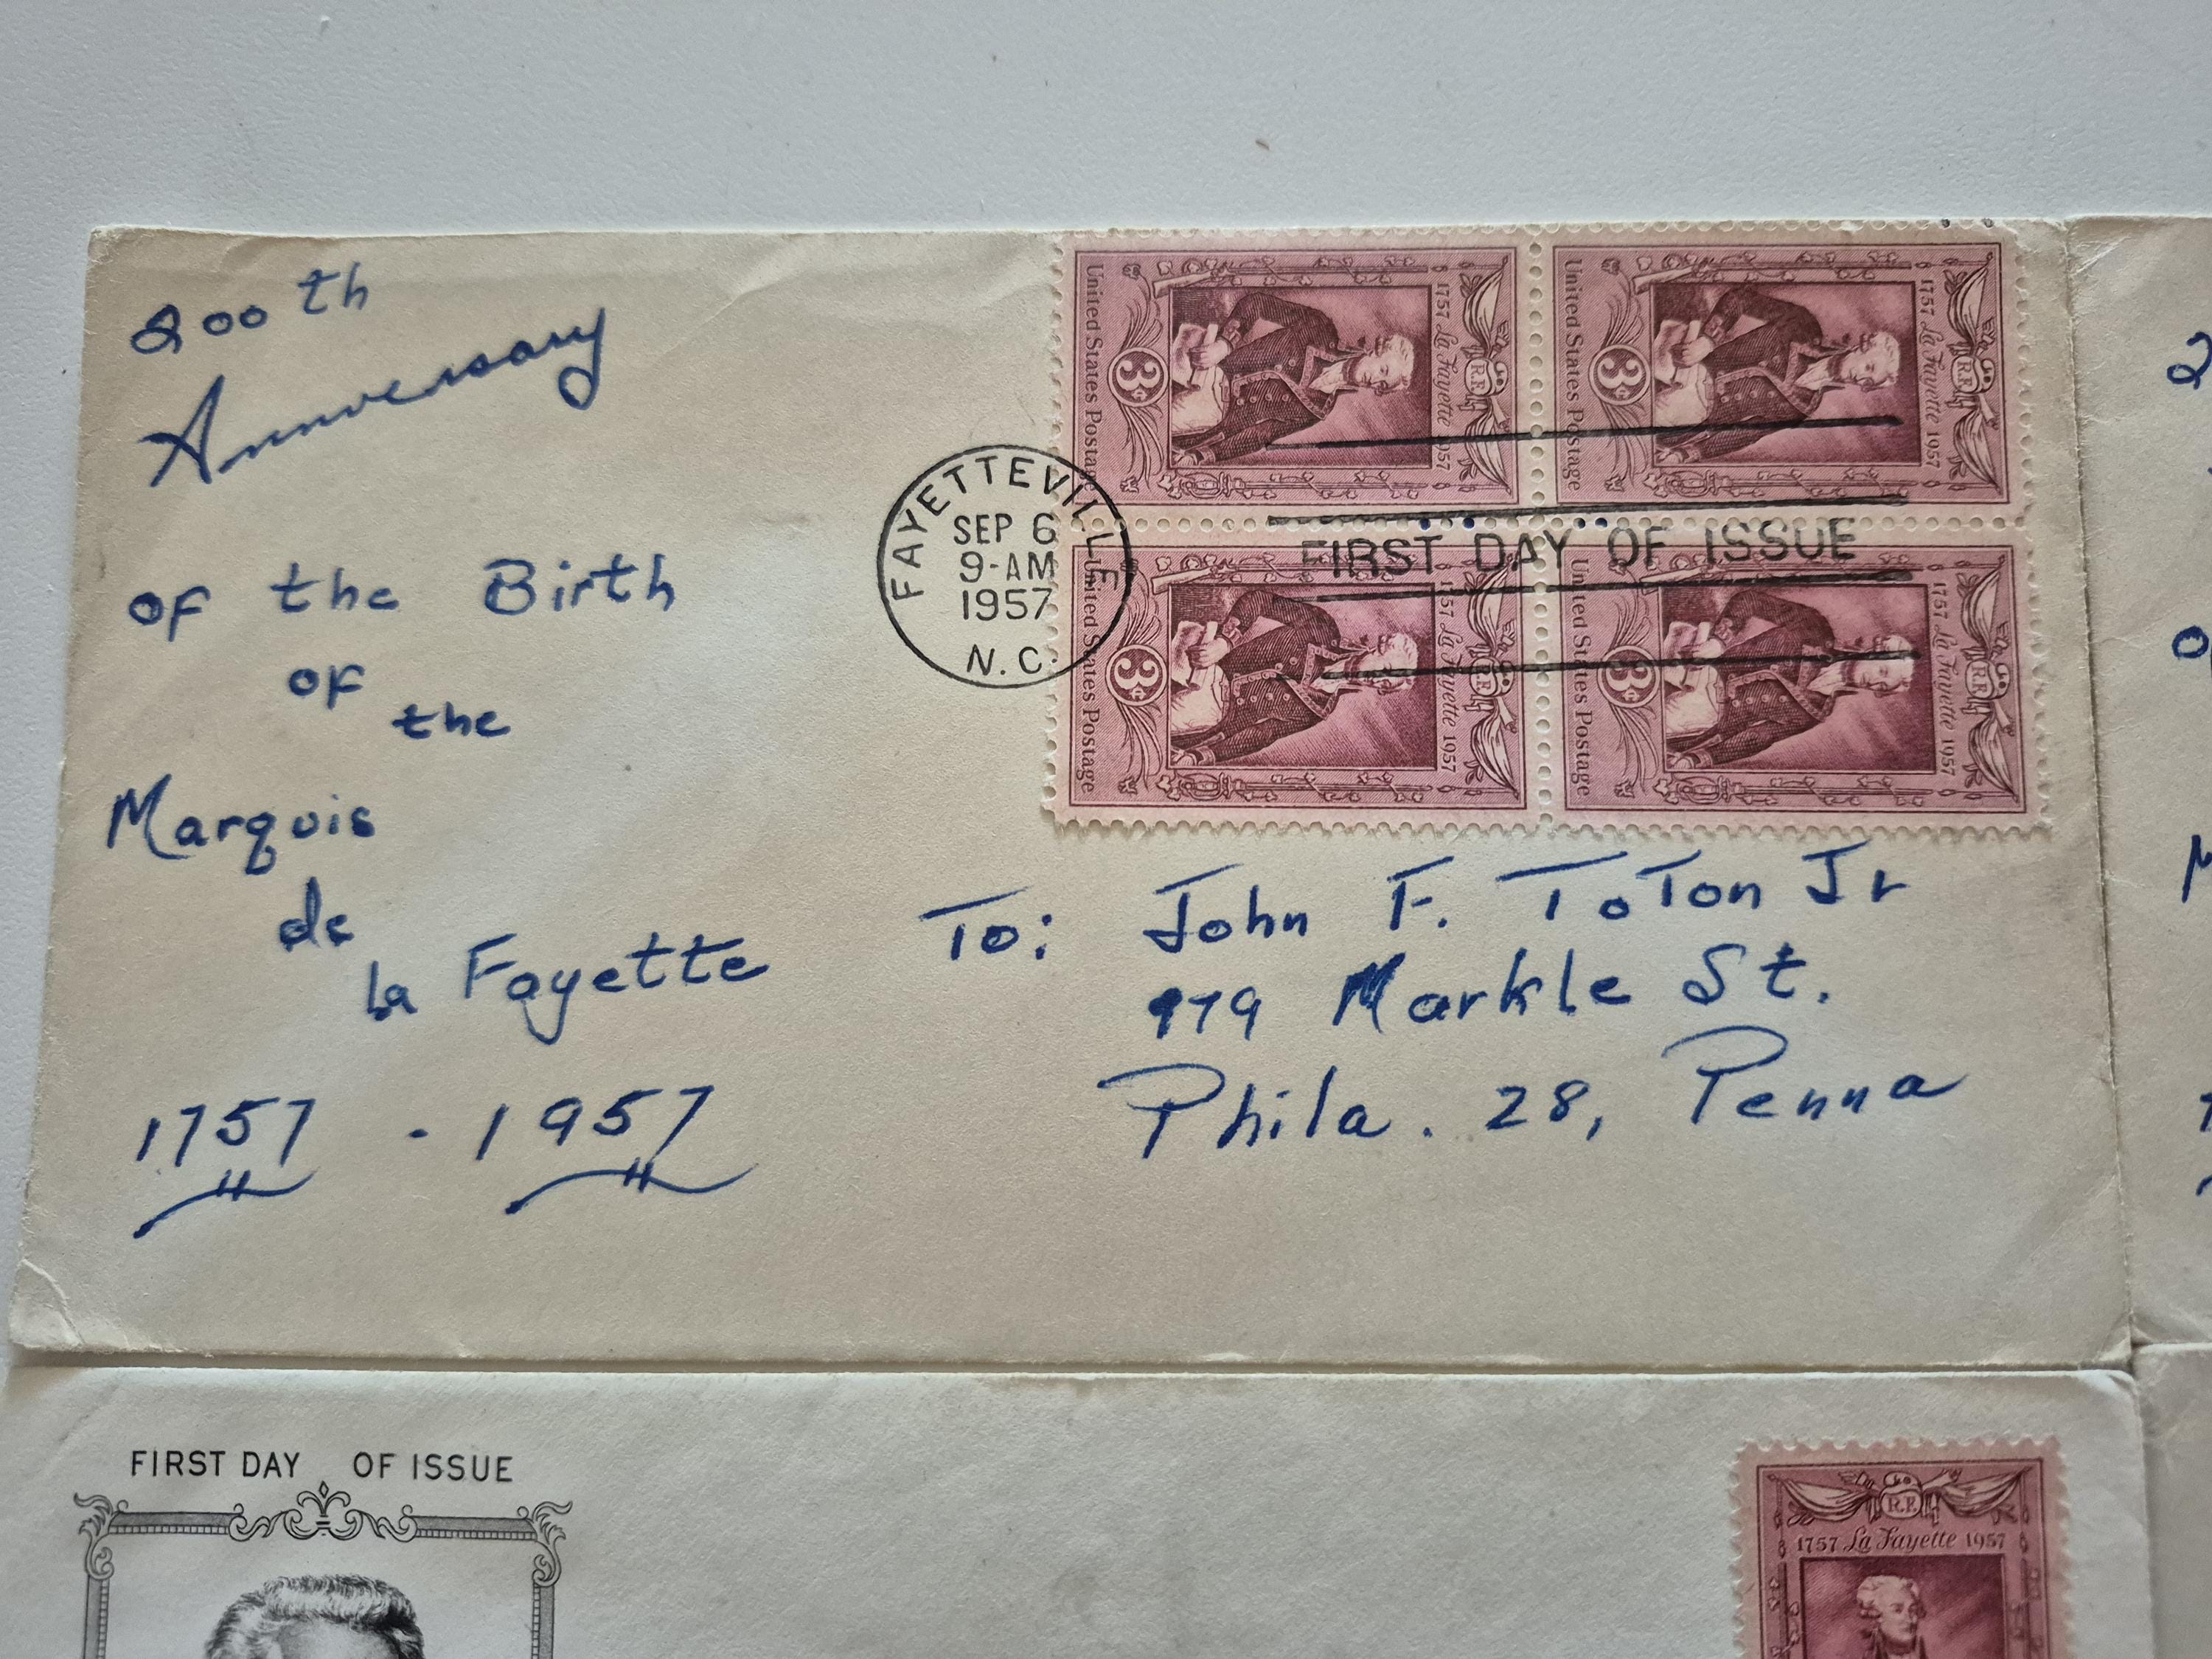 200th
Anniversary
of the Birth
of
the
Marquis
de
la Fayette
1757 - 1957
United States Postage
3¢
1757 La Fayette 1957
R.F.
United States Postage
3¢
1757 La Fayette 1957
R.F.
United States Postage
3¢
1757 La Fayette 1957
R.F.
United States Postage
3¢
1757 La Fayette 1957
R.F.
FAYETTEVILLE
SEP 6
9-AM
1957
N.C.
FIRST DAY OF ISSUE
To: John F. ToTon Jr
979 Markle St.
Phila. 28, Penna
FIRST DAY OF ISSUE
R.F.
1757 La Fayette 1957